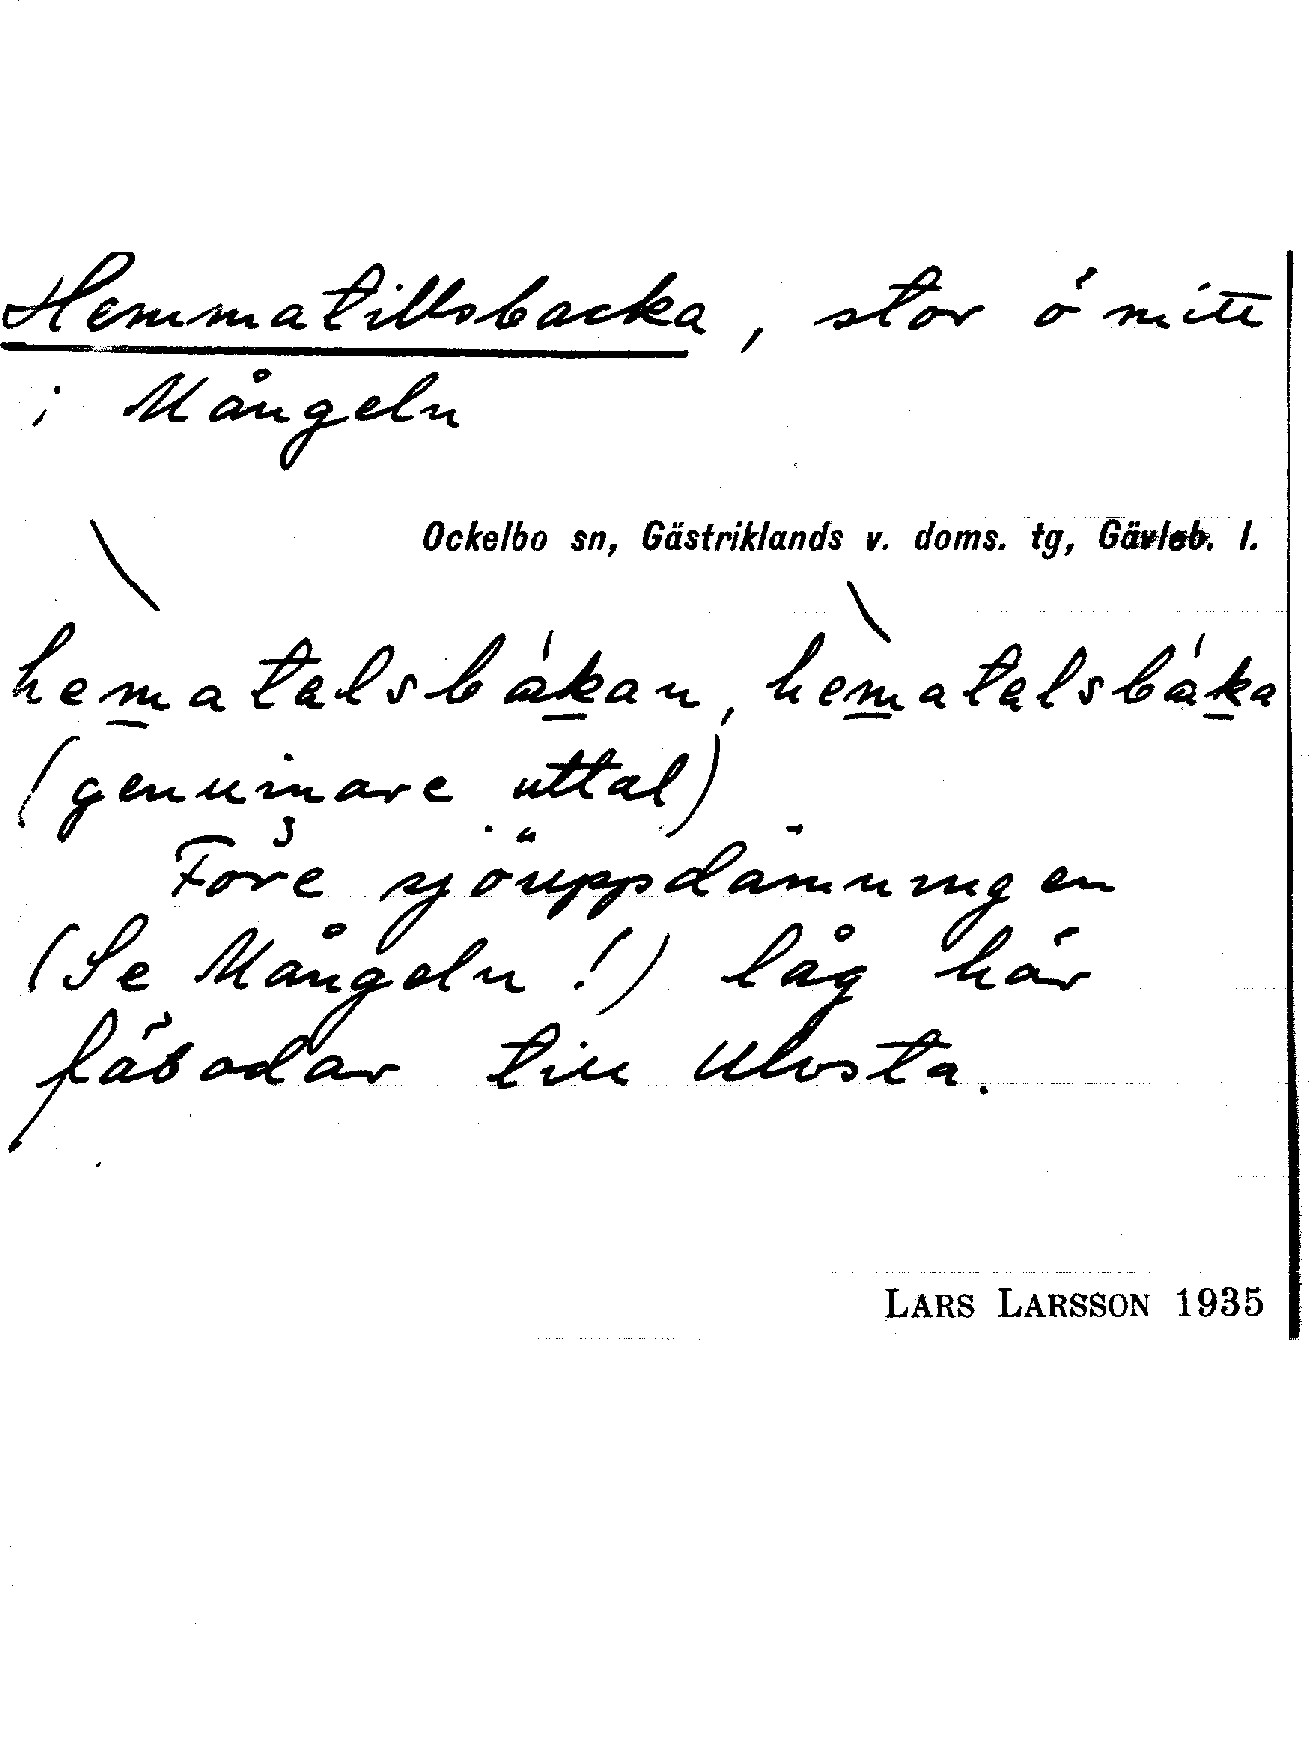 Hemmatillsbacka, stor ö mitt
i Mångeln
Ockelbo sn, Gästriklands v. doms. tg, Gävleb. l.
hematalsbákan, hematalsbáka
(genuinare uttal)
Före sjöuppdämningen
(Se Mångeln!) låg här
fäbodar till Ulvsta.
LARS LARSSON 1935